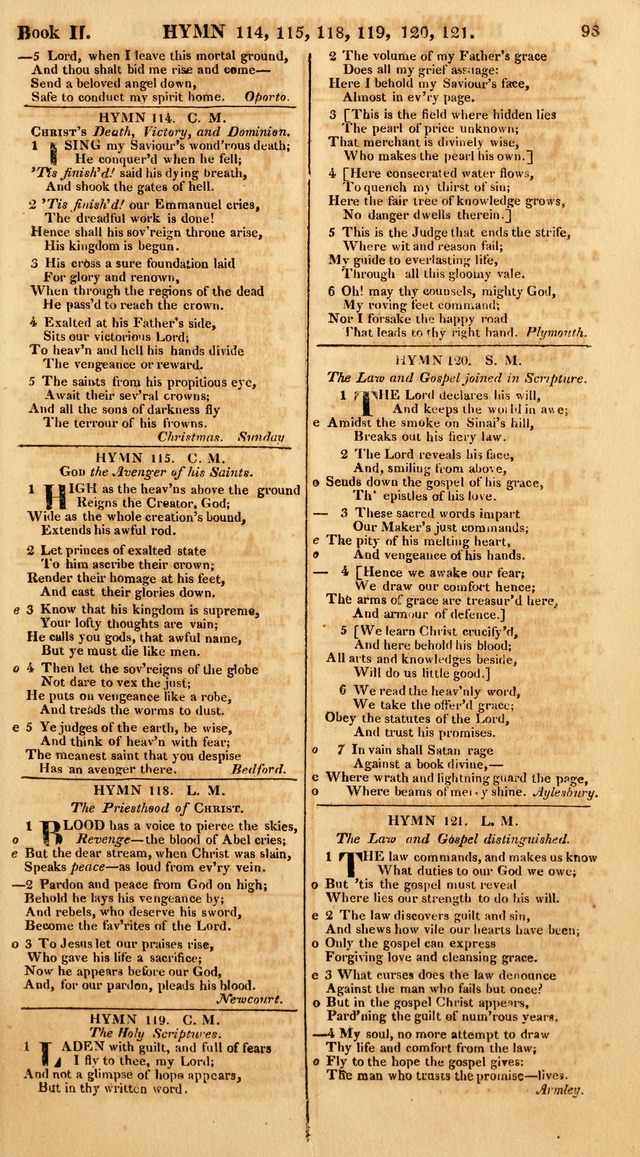 Book II.
HYMN 114, 115, 118, 119, 120, 121.
93
—5 Lord, when I leave this mortal ground,
And thou shalt bid me rise and come—
Send a beloved angel down,
Safe to conduct my spirit home. Oporto.
HYMN 114. C. M.
CHRIST'S Death, Victory, and Dominion.
1 I SING my Saviour's wond'rous death;
He conquer'd when he fell;
'Tis finish'd! said his dying breath,
And shook the gates of hell.
2 'Tis finish'd! our Emmanuel cries,
The dreadful work is done!
Hence shall his sov'reign throne arise,
His kingdom is begun.
3 His cross a sure foundation laid
For glory and renown,
When through the regions of the dead
He pass'd to reach the crown.
4 Exalted at his Father's side,
Sits our victorious Lord;
To heav'n and hell his hands divide
The vengeance or reward.
5 The saints from his propitious eye,
Await their sev'ral crowns;
And all the sons of darkness fly
The terrour of his frowns.
Christmas. Sunday
HYMN 115. C. M.
GOD the Avenger of his Saints.
1 HIGH as the heav'ns above the ground
Reigns the Creator, God;
Wide as the whole creation's bound,
Extends his awful rod.
2 Let princes of exalted state
To him ascribe their crown;
Render their homage at his feet,
And cast their glories down.
e 3 Know that his kingdom is supreme,
Your lofty thoughts are vain;
He calls you gods, that awful name,
But ye must die like men.
o 4 Then let the sov'reigns of the globe
Not dare to vex the just;
He puts on vengeance like a robe,
And treads the worms to dust.
e 5 Ye judges of the earth, be wise,
And think of heav'n with fear;
The meanest saint that you despise
Has an avenger there. Bedford.
HYMN 118. L. M.
The Priesthood of CHRIST.
1 BLOOD has a voice to pierce the skies,
o Revenge—the blood of Abel cries;
e But the dear stream, when Christ was slain,
Speaks peace—as loud from ev'ry vein.
—2 Pardon and peace from God on high;
Behold he lays his vengeance by;
And rebels, who deserve his sword,
Become the fav'rites of the Lord.
o 3 To Jesus let our praises rise,
Who gave his life a sacrifice;
Now he appears before our God,
And, for our pardon, pleads his blood.
Newcourt.
HYMN 119. C. M.
The Holy Scriptures.
1 LADEN with guilt, and full of fears
I fly to thee, my Lord;
And not a glimpse of hope appears,
But in thy written word.
2 The volume of my Father's grace
Does all my grief assuage:
Here I behold my Saviour's face,
Almost in ev'ry page.
3 [This is the field where hidden lies
The pearl of price unknown;
That merchant is divinely wise,
Who makes the pearl his own.]
4 [Here consecrated water flows,
To quench my thirst of sin;
Here the fair tree of knowledge grows,
No danger dwells therein.]
5 This is the Judge that ends the strife,
Where wit and reason fail;
My guide to everlasting life,
Through all this gloomy vale.
6 Oh! may thy counsels, mighty God,
My roving feet command;
Nor I forsake the happy road
That leads to thy right hand. Plymouth.
HYMN 120. S. M.
The Law and Gospel joined in Scripture.
1 THE Lord declares his will,
And keeps the world in awe;
e Amidst the smoke on Sinai's hill,
Breaks out his fiery law.
2 The Lord reveals his face,
And, smiling from above,
o Sends down the gospel of his grace,
Th' epistles of his love.
— 3 These sacred words impart
Our Maker's just commands;
e The pity of his melting heart,
o And vengeance of his hands.
— 4 [Hence we awake our fear;
We draw our comfort hence;
The arms of grace are treasur'd here,
And armour of defence.]
5 [We learn Christ crucify'd,
And here behold his blood;
All arts and knowledges beside,
Will do us little good.]
6 We read the heav'nly word,
We take the offer'd grace;
Obey the statutes of the Lord,
And trust his promises.
o 7 In vain shall Satan rage
Against a book divine,—
e Where wrath and lightning guard the page,
o Where beams of mercy shine. Aylesbury.
HYMN 121. L. M.
The Law and Gospel distinguished.
1 THE law commands, and makes us know
What duties to our God we owe;
o But 'tis the gospel must reveal
Where lies our strength to do his will.
e 2 The law discovers guilt and sin,
And shews how vile our hearts have been;
o Only the gospel can express
Forgiving love and cleansing grace.
e 3 What curses does the law denounce
Against the man who fails but once?
o But in the gospel Christ appears,
Pard'ning the guilt of num'rous years.
—4 My soul, no more attempt to draw
Thy life and comfort from the law;
o Fly to the hope the gospel gives:
The man who trusts the promise—lives.
Armley.